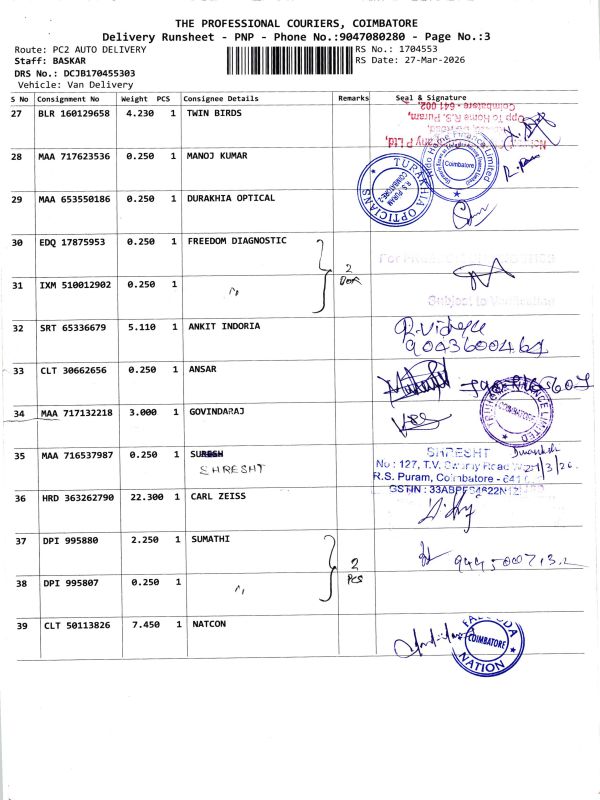 THE PROFESSIONAL COURIERS, COIMBATORE
Delivery Runsheet - PNP - Phone No.:9047080280 - Page No.:3
Route: PC2 AUTO DELIVERY
RS No.: 1704553
Staff: BASKAR
RS Date: 27-Mar-2026
DRS No.: DCJB170455303
Vehicle: Van Delivery
S No Consignment No Weight PCS Consignee Details Remarks Seal & Signature
27 BLR 160129658 4.230 1 TWIN BIRDS
Opp To Home R.S. Puram,
Coimbatore - 641 002.
28 MAA 717623536 0.250 1 MANOJ KUMAR
Coimbatore
TURAKHIA OPTICIANS
R.S. PURAM
COIMBATORE-2
29 MAA 653550186 0.250 1 DURAKHIA OPTICAL
30 EDQ 17875953 0.250 1 FREEDOM DIAGNOSTIC
2
31 IXM 510012902 0.250 1 "
Subject to Verification
32 SRT 65336679 5.110 1 ANKIT INDORIA
R.Vidya
33 CLT 30662656 0.250 1 ANSAR
34 MAA 717132218 3.000 1 GOVINDARAJ
COIMBATORE
35 MAA 716537987 0.250 1 SURESH
SHRESHT
SHRESHT
No : 127, T.V. Swamy Road
R.S. Puram, Coimbatore - 641
27/3/26.
36 HRD 363262790 22.300 1 CARL ZEISS
37 DPI 995880 2.250 1 SUMATHI
2
PCS
38 DPI 995807 0.250 1 "
39 CLT 50113826 7.450 1 NATCON
COIMBATORE
NATION